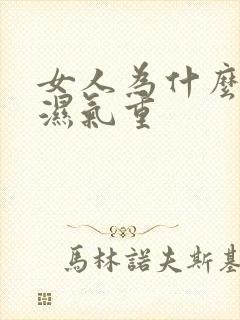 女人為什麼
濕氣重
馬林諾夫斯基